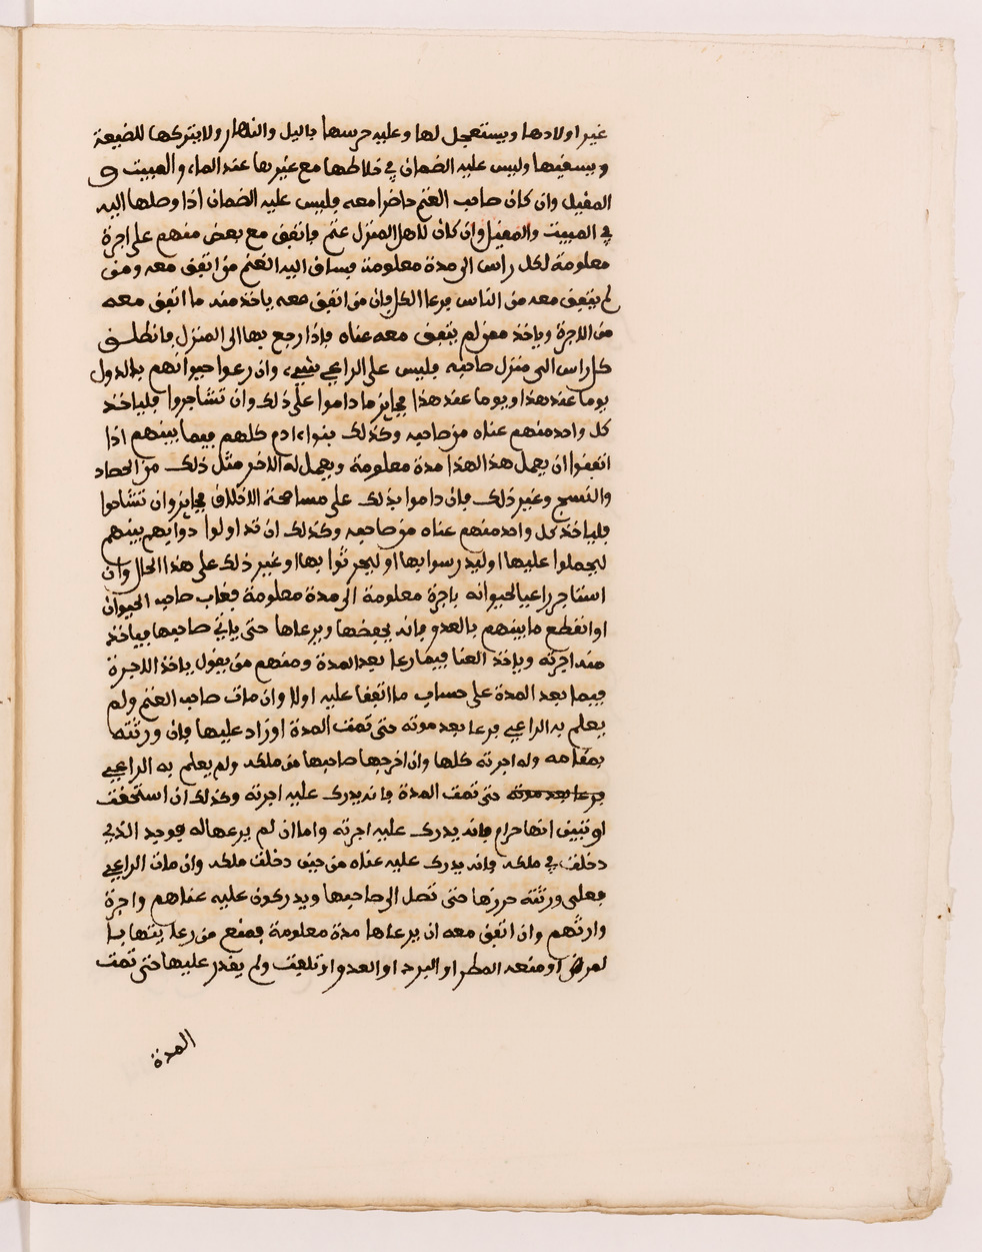 غير اولادها ويستعجل لها وعليه حرسها باليل والنهار ولا يتركها للضيعة
ويسقيها وليس عليه الضمان في خلاطها مع غيرها عند الماء والمبيت و
المقيل وان كان صاحب الغنم حاضرا معه وليس عليه الضمان اذا وصلها اليه
في المبيت والمقيل وان كان لاهل المنزل غنم فاتفق مع بعض منهم على اجرة
معلومة لكل راس الى مدة معلومة فساق اليه الغنم من اتفق معه ومن
لم يتفق معه من الناس فرعا الكل فان من اتفق معه ياخذ منه ما اتفق معه
من الاجرة وياخذ ممن لم يتفق معه عناه فاذا رجع بها الى المنزل فانطلق
كل راس الى منزل صاحبه فليس على الراعي شيء وان رعوا حيوانهم بالدول
يوما عند هذا ويوما عند هذا فجايز ما داموا على ذلك وان تشاجروا فلياخذ
كل واحد منهم عناه من صاحبه وكذلك بنواءادم كلهم فيما بينهم اذا
اتفقوا ان يعمل هذا لهذا مدة معلومة ويعمل له الاخر مثل ذلك من الحصاد
والنسج وغير ذلك فان داموا بذلك على مسامحة الاخلاق فجايز وان تشاحوا
فلياخذ كل واحد منهم عناه من صاحبه وكذلك ان تداولوا دوابهم بينهم
ليحملوا عليها او ليدرسوا بها او ليحرثوا بها او غير ذلك على هذا الحال وان
استاجر راعيا لحيوانه باجرة معلومة الى مدة معلومة فغاب صاحب الحيوان
او انقطع ما بينهم بالعدو فانه يحفضها ويرعاها حتى ياتي صاحبها فياخذ
منه اجرته وياخذ العنا فيما رعا بعد المدة ومنهم من يقول ياخذ الاجرة
فيما بعد المدة على حساب ما اتفقا عليه اولا وان مات صاحب الغنم ولم
يعلم به الراعي فرعا بعد موته حتى تمت المدة او زاد عليها فان ورثته
بمقامه وله اجرته كلها وان اخرجها صاحبها من ملكه ولم يعلم به الراعي
فرعا بعد موته حتى تمت المدة فانه يدرك عليه اجرته وكذلك ان استحقت
او تبين انها حرام فانه يدرك عليه اجرته واما ان لم يرعها له فوجد الذي
دخلت في ملكه فانه يدرك عليه عناه من حين دخلت ملكه وان مات الراعي
فعلى ورثته حرزها حتى تصل الى صاحبها ويدركون عليه عناهم واجرة
وارثهم وان اتفق معه ان يرعاها مدة معلومة فمنع من رعايتها بـا
لمرض او منعه المطر او البرد او العدو او تلفت ولم يقدر عليها حتى تمت
المدة